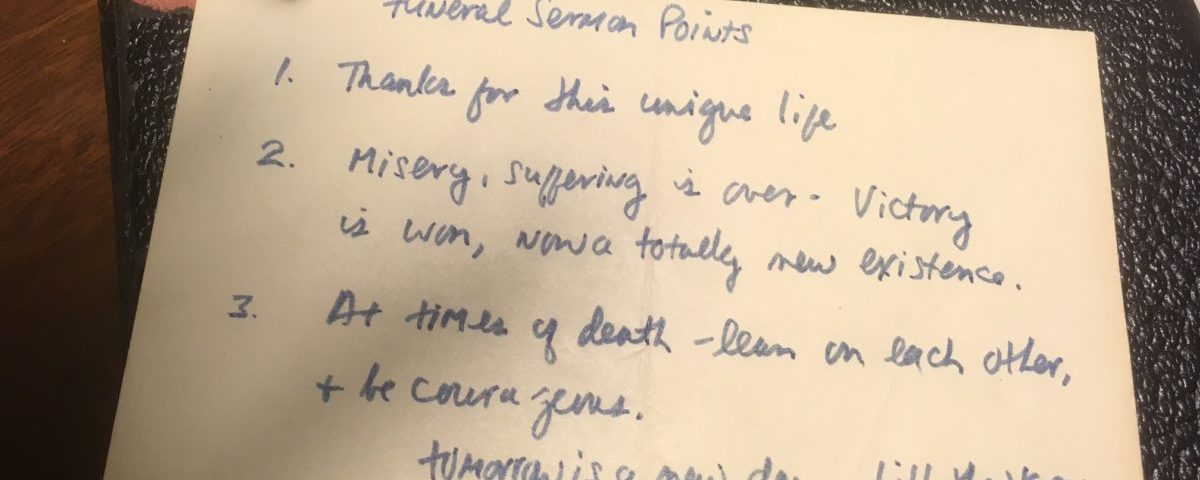 Funeral Sermon Points
1. Thanks for this unique life
2. Misery, suffering is over. Victory
is won, now a totally new existence.
3. At times of death - lean on each other,
+ be courageous.
tomorrow is a new day